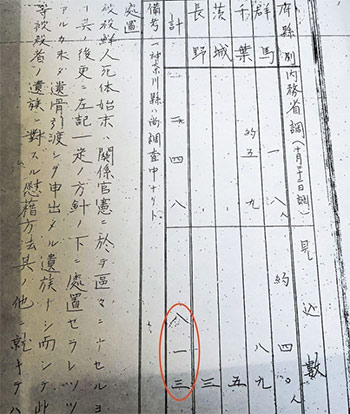 府縣別 内務省調(十月二十二日調) 見込數
群馬 一八人 約四〇人
千葉 約五九 八九
茨城 五
長野 三
計 二四八 八一三
備考 一神奈川縣ハ尚調査中ナリト
處置
被殺鮮人死体始末ハ關係官憲ニ於テ區々ニナセルヨ
其ノ後更ニ左記一定ノ方針ノ下ニ處置セラレツツ
アルカ未ダ遺骨引渡シヲ申出デタル遺族ナシ而シテ此
等被殺者ノ遺族ニ對スル慰藉方法其ノ他ニ就キテハ